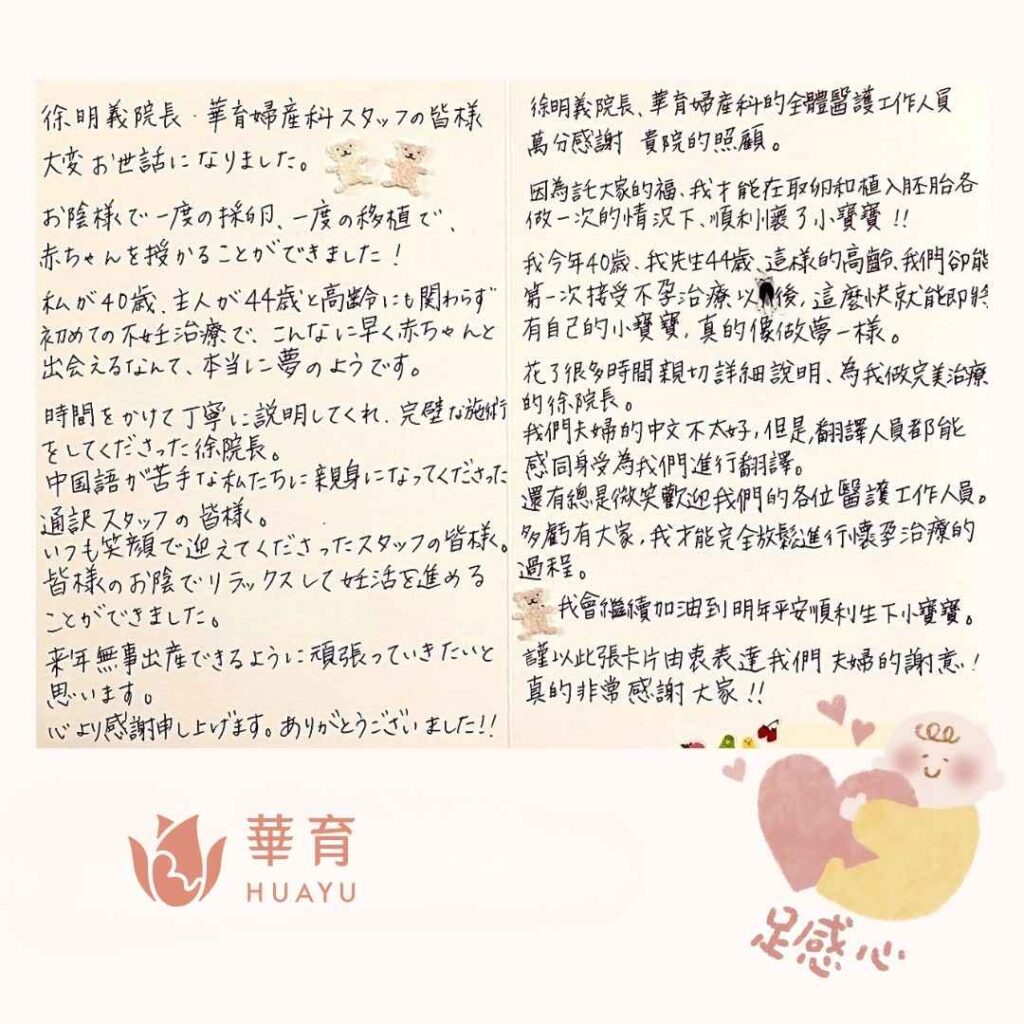 徐明義院長・華育婦産科スタッフの皆様
大変お世話になりました。
お陰様で一度の採卵、一度の移植で、
赤ちゃんを授かることができました！
私が40歳、主人が44歳と高齢にも関わらず
初めての不妊治療で、こんなに早く赤ちゃんと
出会えるなんて、本当に夢のようです。
時間をかけて丁寧に説明してくれ、完璧な施術
をしてくださった徐院長。
中国語が苦手な私たちに親身になってくださった
通訳スタッフの皆様。
いつも笑顔で迎えてくださったスタッフの皆様。
皆様のお陰でリラックスして妊活を進める
ことができました。
来年無事出産できるように頑張っていきたいと
思います。
心より感謝申し上げます。ありがとうございました!!
徐明義院長、華育婦産科的全體醫護工作人員
萬分感謝 貴院的照顧。
因為託大家的福、我才能在取卵和植入胚胎各
做一次的情況下、順利懷了小寶寶!!
我今年40歲、我先生44歲、這樣的高齡、我們卻能
第一次接受不孕治療以後，這麼快就能即將
有自己的小寶寶，真的像做夢一樣。
花了很多時間親切詳細說明、為我做完美治療
的徐院長。
我們夫婦的中文不太好，但是，翻譯人員都能
感同身受為我們進行翻譯。
還有總是微笑歡迎我們的各位醫護工作人員。
多虧有大家，我才能完全放鬆進行懷孕治療的
過程。
我會繼續加油到明年平安順利生下小寶寶。
謹以此張卡片由衷表達我們夫婦的謝意！
真的非常感謝大家!!
華育
HUAYU
足感心